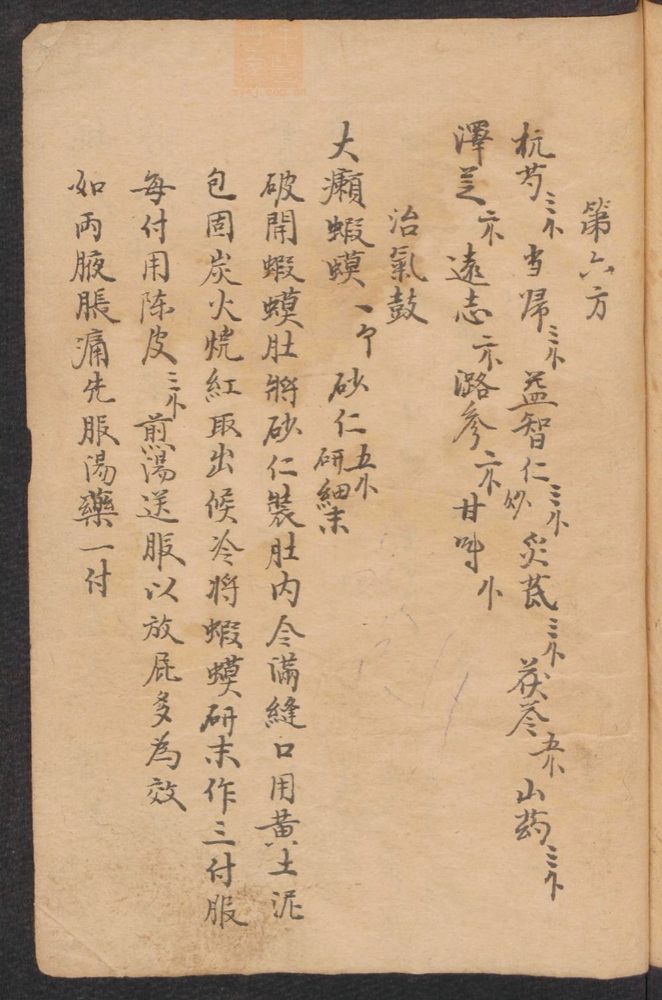 第六方
杭芍三卜当歸三卜益智仁炒三卜炙芪三卜茯苓五卜山药三卜
澤兰二卜遠志二卜潞參二卜甘草卜
治氣鼓
大癩蝦蟆一个砂仁五卜研細末
破開蝦蟆肚將砂仁裝肚内令滿縫口用黃土泥
包固炭火烧紅取出候冷将蝦蟆研末作三付服
每付用陈皮三卜煎湯送服以放屁多為效
如两腋脹痛先服湯藥一付